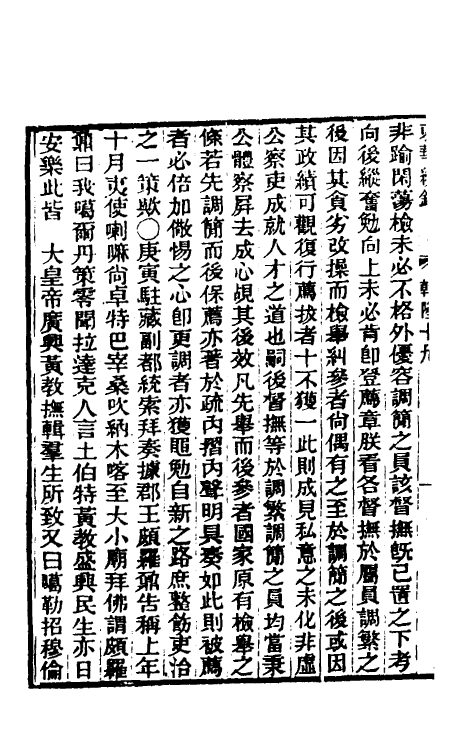 東華續錄 乾隆十九
非踰閑蕩檢未必不格外優容調簡之員該督撫旣已置之下考
向後縱奮勉向上未必肯卽登薦章朕看各督撫於屬員調繁之
後因其貪劣改操而檢舉糾參者尙偶有之至於調簡之後或因
其政績可觀復行薦拔者十不獲一此則成見私意之未化非虛
公察吏成就人才之道也嗣後督撫等於調繁調簡之員均當秉
公體察屏去成心覘其後效凡先舉而後參者國家原有檢舉之
條若先調簡而後保薦亦著於疏內摺內聲明具奏如此則被薦
者必倍加儆惕之心卽更調者亦獲黽勉自新之路庶整飭吏治
之一策歟○庚寅駐藏副都統索拜奏據郡王頗羅鼐告稱上年
十月夷使喇嘛尙卓特巴宰桑吹納木喀至大小廟拜佛謂頗羅
鼐曰我噶爾丹策零聞拉達克人言土伯特黃教盛興民生亦日
安樂此皆 大皇帝廣興黃教撫輯羣生所致又曰噶勒招穆倫